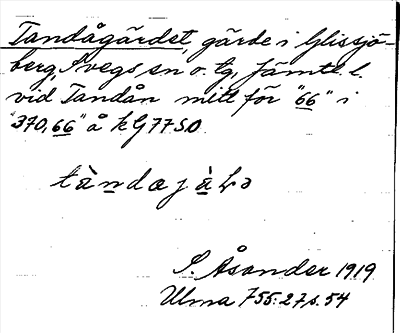 Tandågärdet, gärde i Glissjö-
berg, Svegs sn o. tg, Jämtl. l.
vid Tandån mitt för "66" i
"370,66" å kG 77 SO.
tàndagàɽə
S. Åsander 1919
Ulma 755:27, s. 54